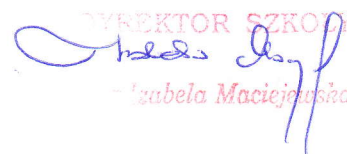 DYREKTOR SZKOŁY
Izabela Maciejewska